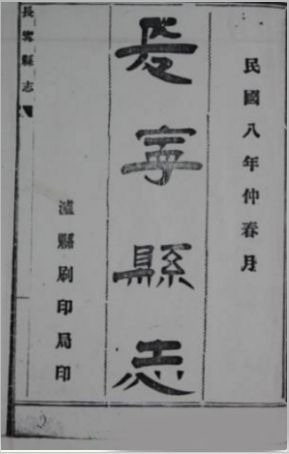 民國八年仲春月
長寧縣志
瀘縣刷印局印
長寧縣志